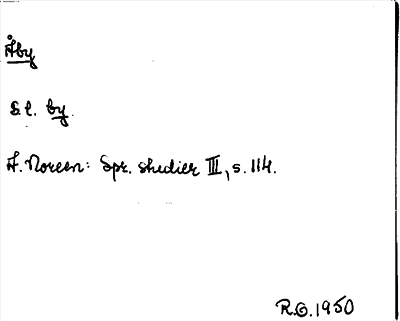 Åby
S.l. by.
A. Noreen: Spr. studier III, s. 114.
R.O. 1950